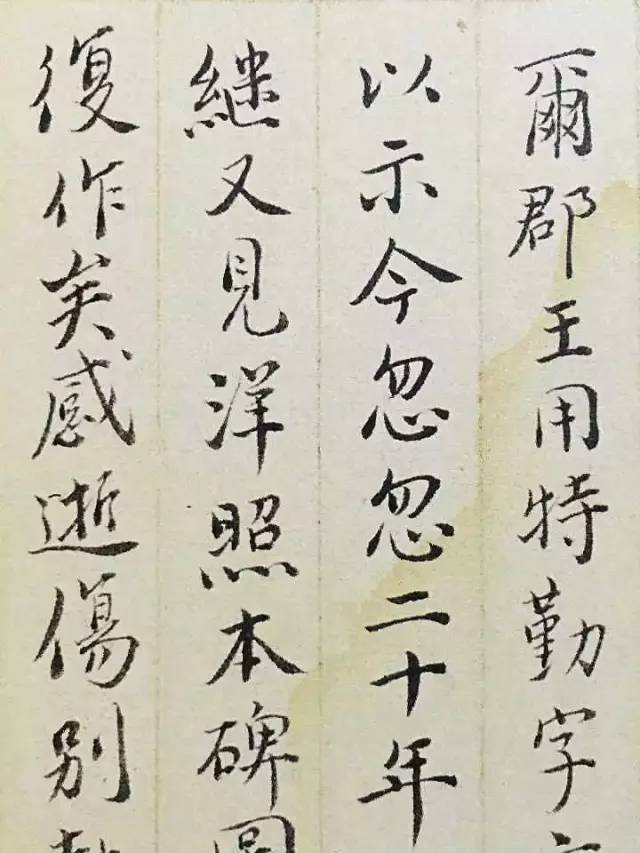 爾郡王用特勤字
以示今忽忽二十年
繼又見洋照本碑圓
復作矣感逝傷別